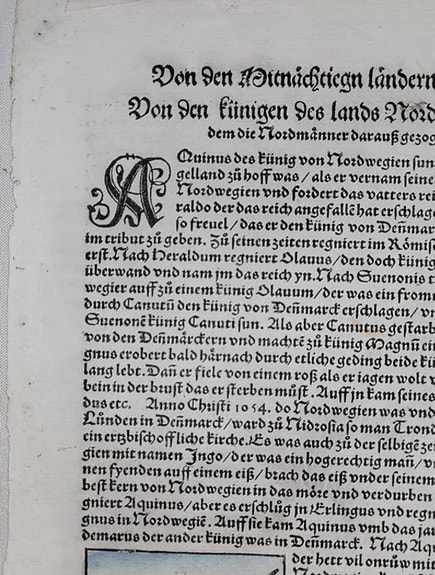 Von den Mitnächtiegn ländern
Von den künigen des lands Nord
dem die Nordmänner darauß gezog
AQuinus des künig von Nordwegien sun
gelland zů hoff was / als er vernam seine
Nordwegien vnd fordert das vatters rei
raldo der das reich angefallē hat erschlagē
so freuel / das er den künig von Deñmar
im tribut zů geben. Zů seinen zeiten regniert im Römisc
erst. Nach Heraldum regniert Olauus / den doch künig
überwand vnd nam jm das reich yn. Nach Suenonis t
wegier auff zů einem künig Olauum / der was ein fromm
durch Canutū den künig von Deñmarck erschlagen / vn
Suenonē künig Canuti sun. Als aber Canutus gestarb
von den Denmärckern vnd machtē zů künig Magnū ein
gnus erobert bald härnach durch etliche geding beide kü
lang lebt. Dañ er fiele von einem roß als er iagen wolt v
bein in der brust das er sterben můst. Auff jn kam seines
dus etc. Anno Christi 1054. do Nordwegien was vnd
Lunden in Deñmarck / ward zů Nidrosia so man Trond
ein ertzbischoffliche kirche. Es was auch zů der selbigē zei
gien mit namen Jngo / der was ein hogerechtig mañ / v
nen fyenden auff einem eiß / brach das eiß vnder seinem
best kern von Nordwegien in das möre vnd verdurben
gniert Aquinus / aber es erschlůg jn Erlingus vnd regn
gnus in Nordwegiē. Auff sie kam Aquinus vmb das jar
demarus der ander künig was in Deñmarck. Nach Aqu
der hett vil onrůw mit